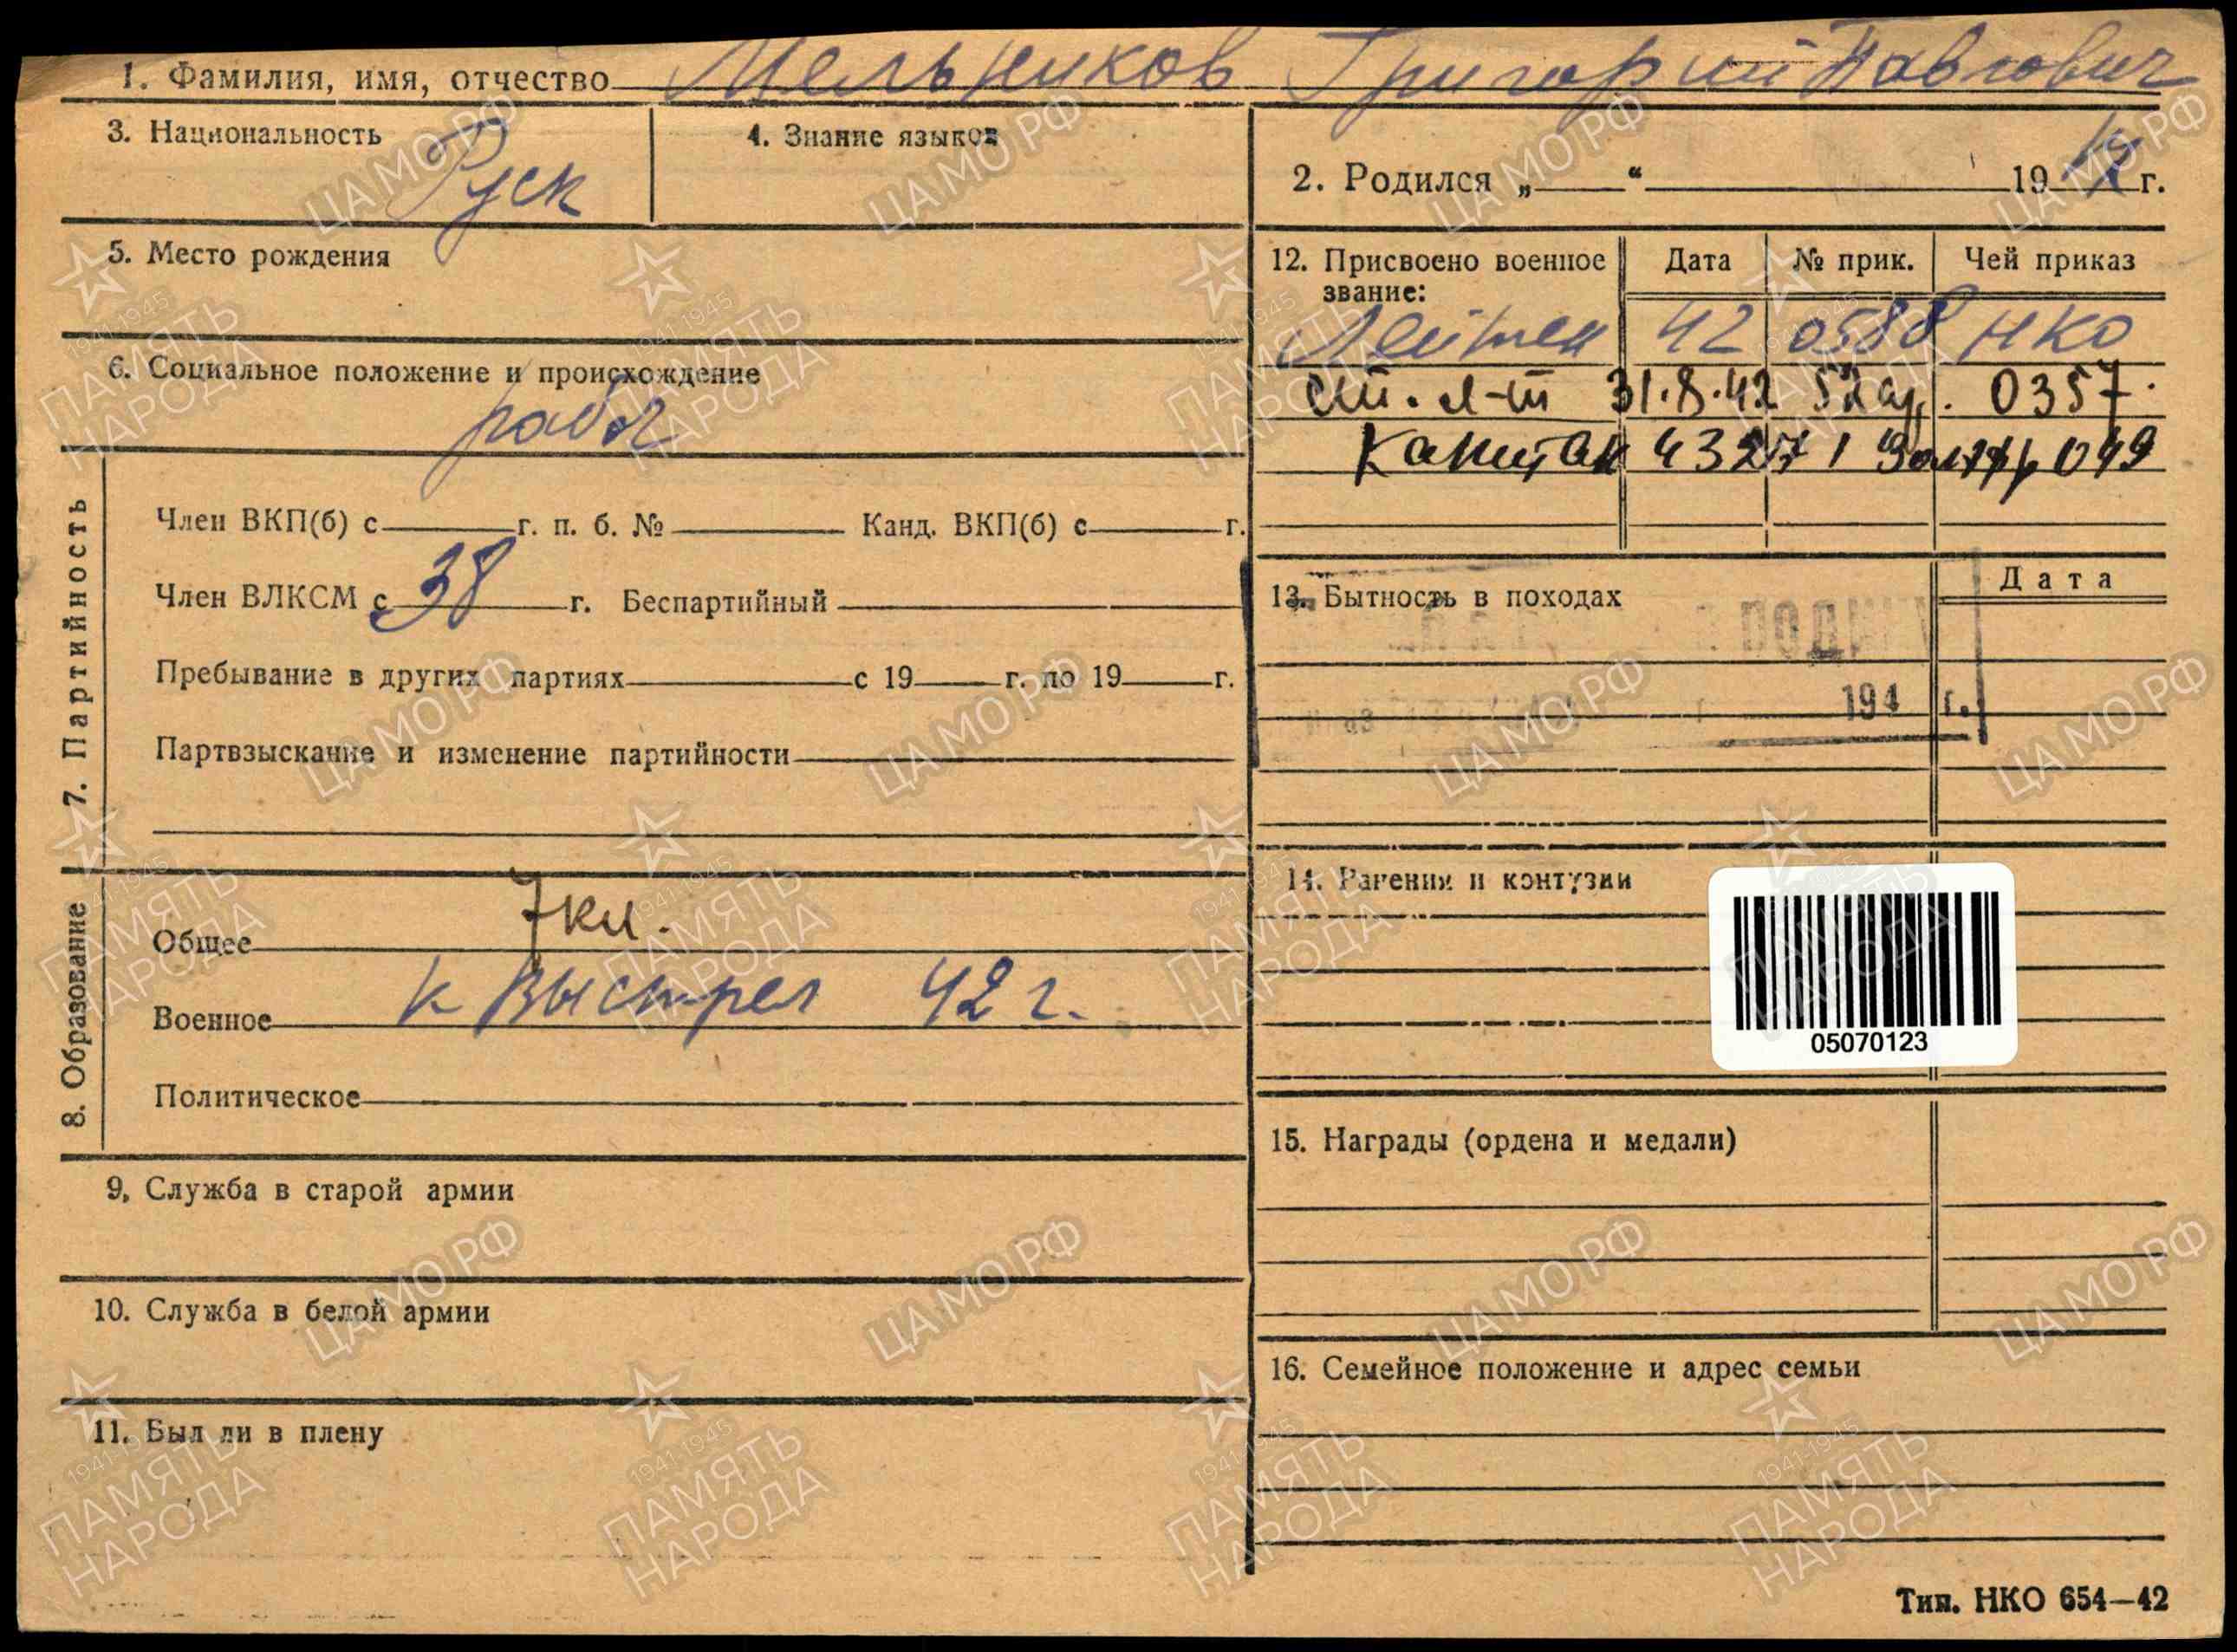 1. Фамилия, имя, отчество Мельников Григорий Павлович
3. Национальность Руск
4. Знание языков
2. Родился „ “ 19 г.
5. Место рождения
6. Социальное положение и происхождение
рабоч
7. Партийность
Член ВКП(б) с г. п. б. № Канд. ВКП(б) с г.
Член ВЛКСМ с 38 г. Беспартийный
Пребывание в других партиях с 19 г. по 19 г.
Партвзыскание и изменение партийности
8. Образование
Общее 7 кл.
Военное К Выстрел 42 г.
Политическое
9. Служба в старой армии
10. Служба в белой армии
11. Был ли в плену
12. Присвоено военное звание: Дата № прик. Чей приказ
Лейтен 42 0588 НКО
ст. л-т 31.8.42 52 ар. 0357.
Капитан 049
13. Бытность в походах Дата
194 г.
14. Ранения и контузии
05070123
15. Награды (ордена и медали)
16. Семейное положение и адрес семьи
Тип. НКО 654—42
ЦАМО РФ
1941-1945
ПАМЯТЬ
НАРОДА